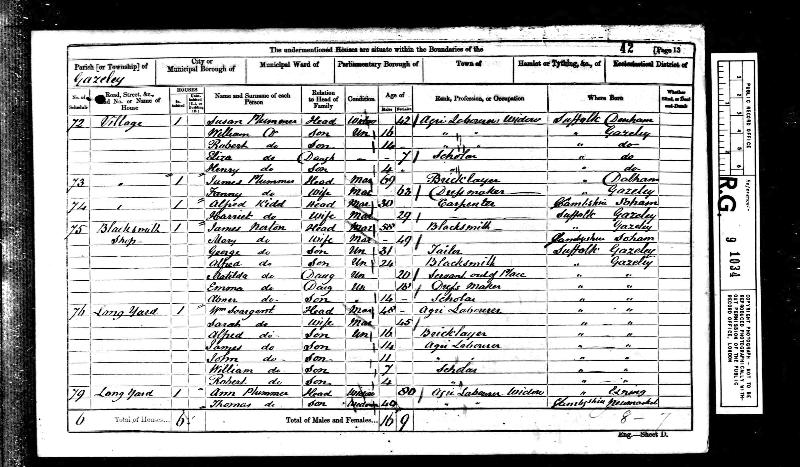 The undermentioned Houses are situate within the Boundaries of the
42
Page 13
Parish [or Township] of
Gazeley
City or Municipal Borough of
Municipal Ward of
Parliamentary Borough of
Town of
Hamlet or Tything, &c., of
Ecclesiastical District of
No. of Schedule
Road, Street, &c., and No. or Name of House
HOUSES
Name and Surname of each Person
Relation to Head of Family
Condition
Age of
Males
Females
Rank, Profession, or Occupation
Where Born
72 Village 1 Susan Plummer Head Widow 42 Agri Labourers Widow Suffolk Denham
William do Son Un 16 " " " Gazeley
Robert do Son 14 " " " do
Eliza do Daugh - 7 Scholar " do
Henry do Son 4 " " do
73 " 1 James Plummer Head Mar 69 Bricklayer " Dalham
Fanny do Wife Mar 63 Dressmaker " Gazeley
74 " 1 Alfred Kidd Head Mar 30 Carpenter Cambshire Soham
Harriet do Wife Mar 29 Suffolk Gazeley
75 Blacksmith Shop 1 James Norton Head Mar 58 Blacksmith " Gazeley
Mary do Wife Mar 49 Cambshire Soham
George do Son Un 31 Tailor Suffolk Gazeley
Alfred do Son Un 24 Blacksmith " Gazeley
Matilda do Daug Un 20 Servant out of Place " "
Emma do Daug Un 18 Dress Maker " "
Abner do Son 14 Scholar " "
76 Long Yard 1 Wm Seargent Head Mar 48 Agri Labourer " "
Sarah do Wife Mar 45 " "
Alfred do Son Un 16 Bricklayer " "
James do Son 14 Agri Labourer " "
John do Son 11 " " "
William do Son 7 Scholar " "
Robert do Son 4 " " "
79 Long Yard 1 Ann Plummer Head Widow 80 Agri Labourer Widow " Exning
Thomas do Son 40 " " Cambshire Newmarket
6 Total of Houses... 6 Total of Males and Females... 16 9
8-7
Eng.—Sheet D.
PUBLIC RECORD OFFICE
Reference:-
R.G. 9 1034
COPYRIGHT PHOTOGRAPH - NOT TO BE REPRODUCED PHOTOGRAPHICALLY WITHOUT PERMISSION OF THE PUBLIC RECORD OFFICE, LONDON